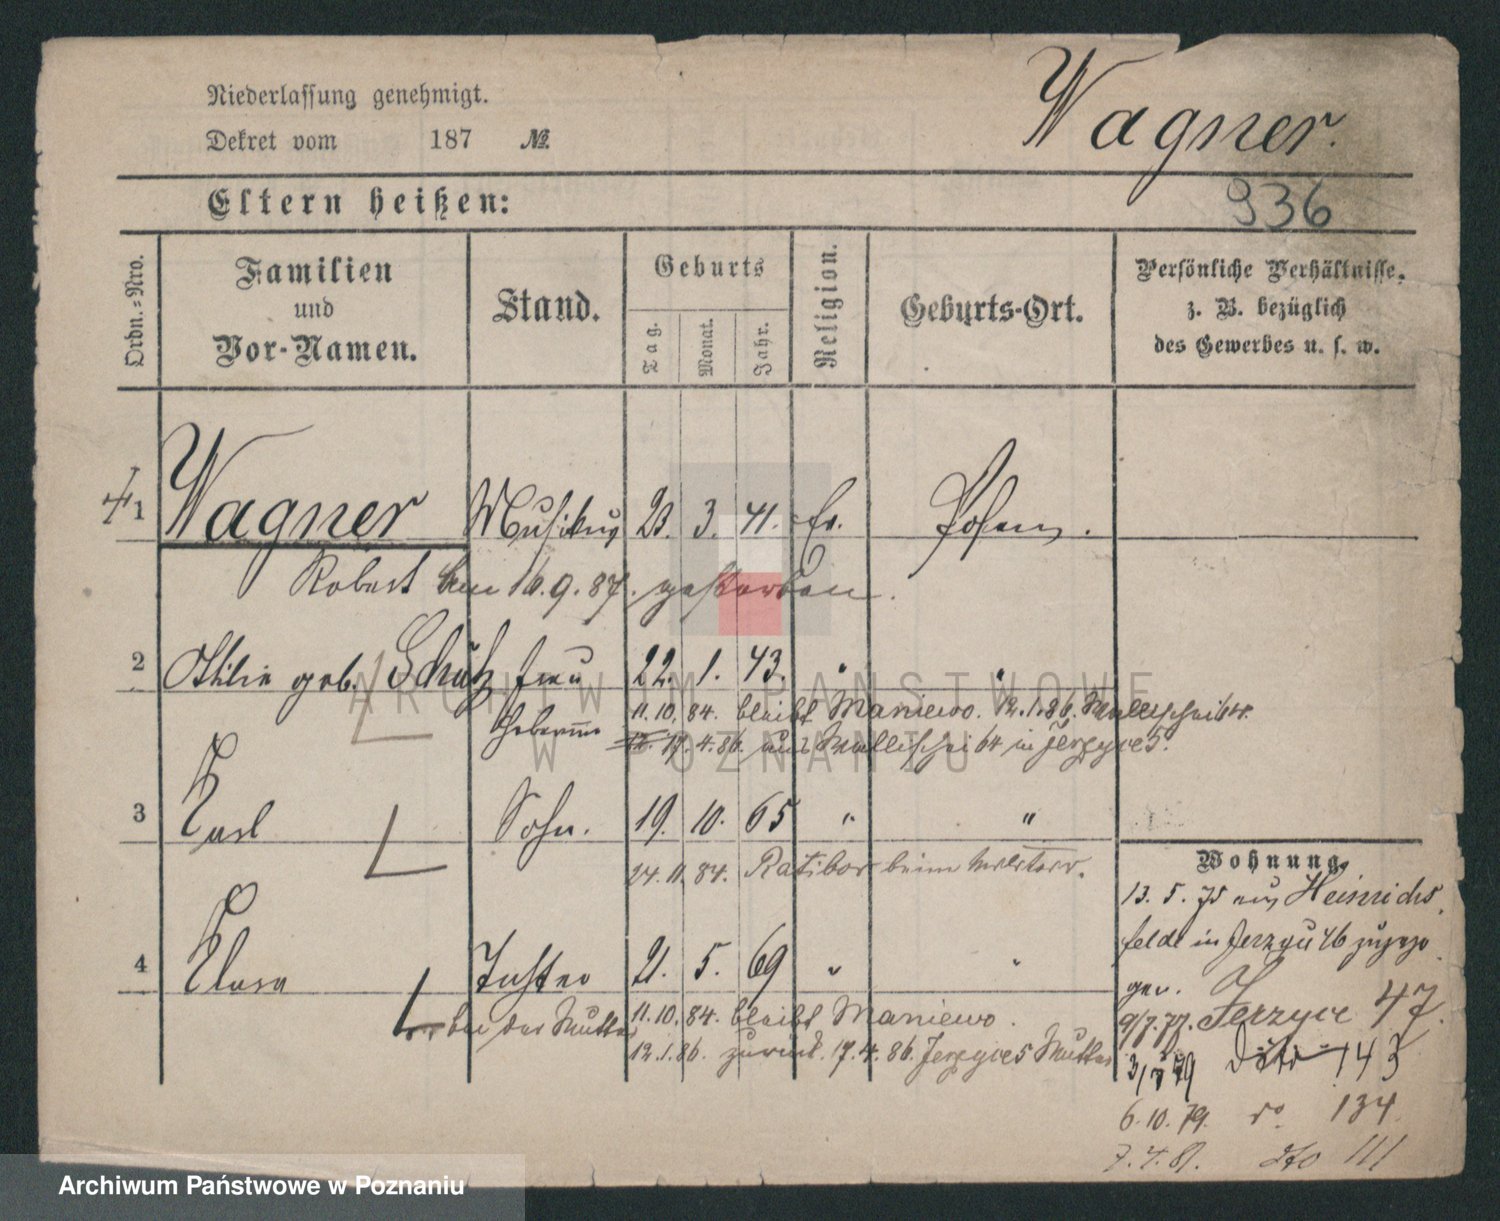 Niederlassung genehmigt.
Dekret vom 187 №
Wagner.
936
Eltern heißen:
Ordn.-Nro.
Familien
und
Vor-Namen.
Stand.
Geburts
Tag.
Monat.
Jahr.
Religion.
Geburts-Ort.
Persönliche Verhältnisse,
z. B. bezüglich
des Gewerbes u. s. w.
1 Wagner Musikus 23. 3. 41. Ev. Posen.
Robert am 16. 9. 87. gestorben.
2 Ottilie geb. Schulz Frau 22. 1. 43. " "
11. 10. 84. bleibt Maniewo. 12. 1. 86.
17. 4. 86. aus in Jerzyce 5.
3 Karl Sohn. 19. 10. 65 " "
24. 11. 84. Ratibor beim Militär.
4 Klara Tochter 21. 5. 69 " "
bei der Mutter 11. 10. 84. bleibt Maniewo.
12. 1. 86. zurück. 17. 4. 86. Jerzyce 5 Mutter
Wohnung.
13. 5. 75 aus Heinrichs
felde in Jerzyce 46 zugezo
gen.
9/7. 77. Jerzyce 47.
3/7 79 dito 143
6. 10. 79. do. 134
7. 4. 81. dto 111
ARCHIWUM PAŃSTWOWE
W POZNANIU
Archiwum Państwowe w Poznaniu